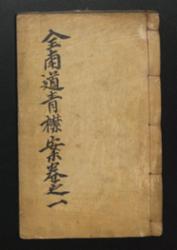 全南道青襟案卷之一